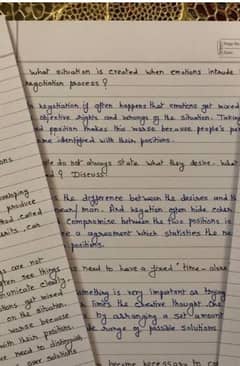 What situation is created when emotions intrude
negotiation process?
Negotiation if often happens that emotions get mixed
objective rights and wrongs of the situation. Taking
d position makes this worse because people's
me identified with their positions.
le do not always state what they desire. What
d? Discuss
s the difference between the desires and th
mean/man. And negation often hide
Compromise between the two positions is
e a agreement which statisfies the ne
positions.
is need to have a fixed "time-
mething is very important as trying
limits the creative thought.
by arranging a set amount
de range of possible solutions
become necessary to
ons
developing
produce
and
can
s are not
ten see things
municate clearly.
otions get mixed
on the situation.
worse because
with their positions.
need to distinguish
over solutions